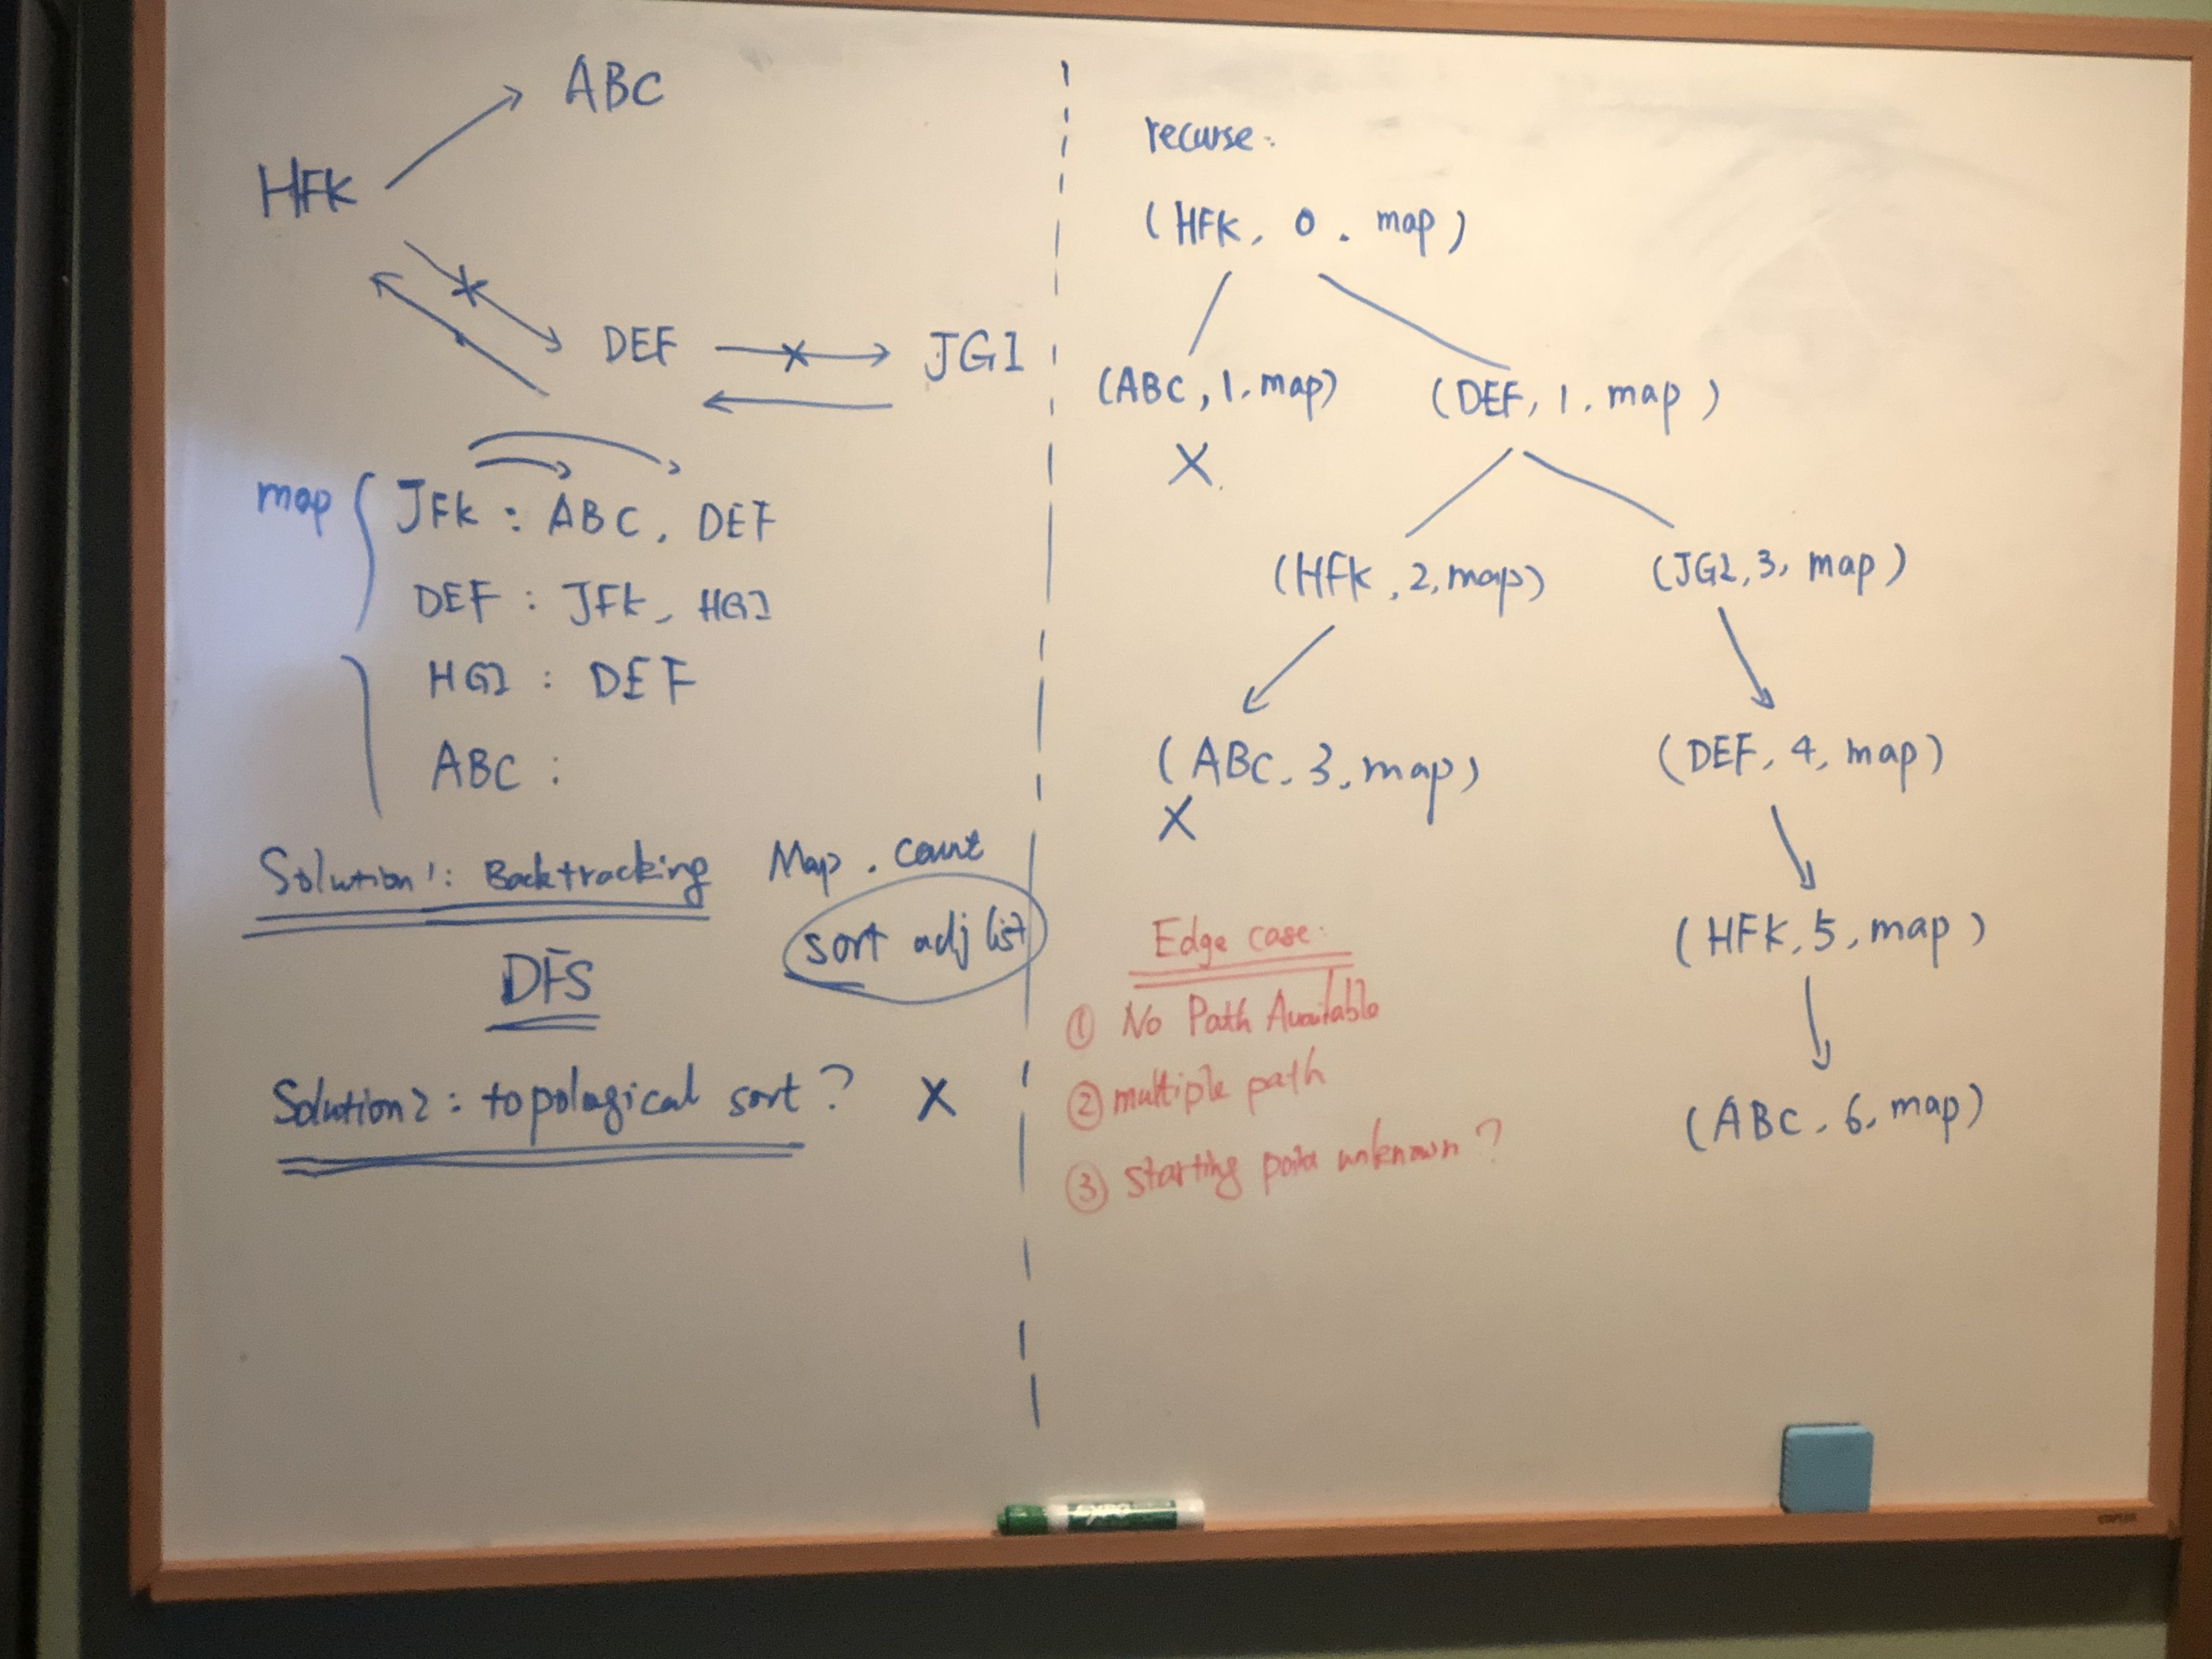 ABC
HFK
DEF
JGI
map
JFK : ABC, DEF
DEF : JFK, HGI
HGI : DEF
ABC :
Solution1: Backtracking
Map, count
DFS
sort adj list
Solution2: topological sort? X
recurse:
(HFK, 0, map)
(ABC, 1, map) (DEF, 1, map)
X
(HFK, 2, map) (JGI, 3, map)
(ABC, 3, map) (DEF, 4, map)
X
(HFK, 5, map)
(ABC, 6, map)
Edge case:
① No Path Available
② multiple path
③ starting point unknown?
EXPO